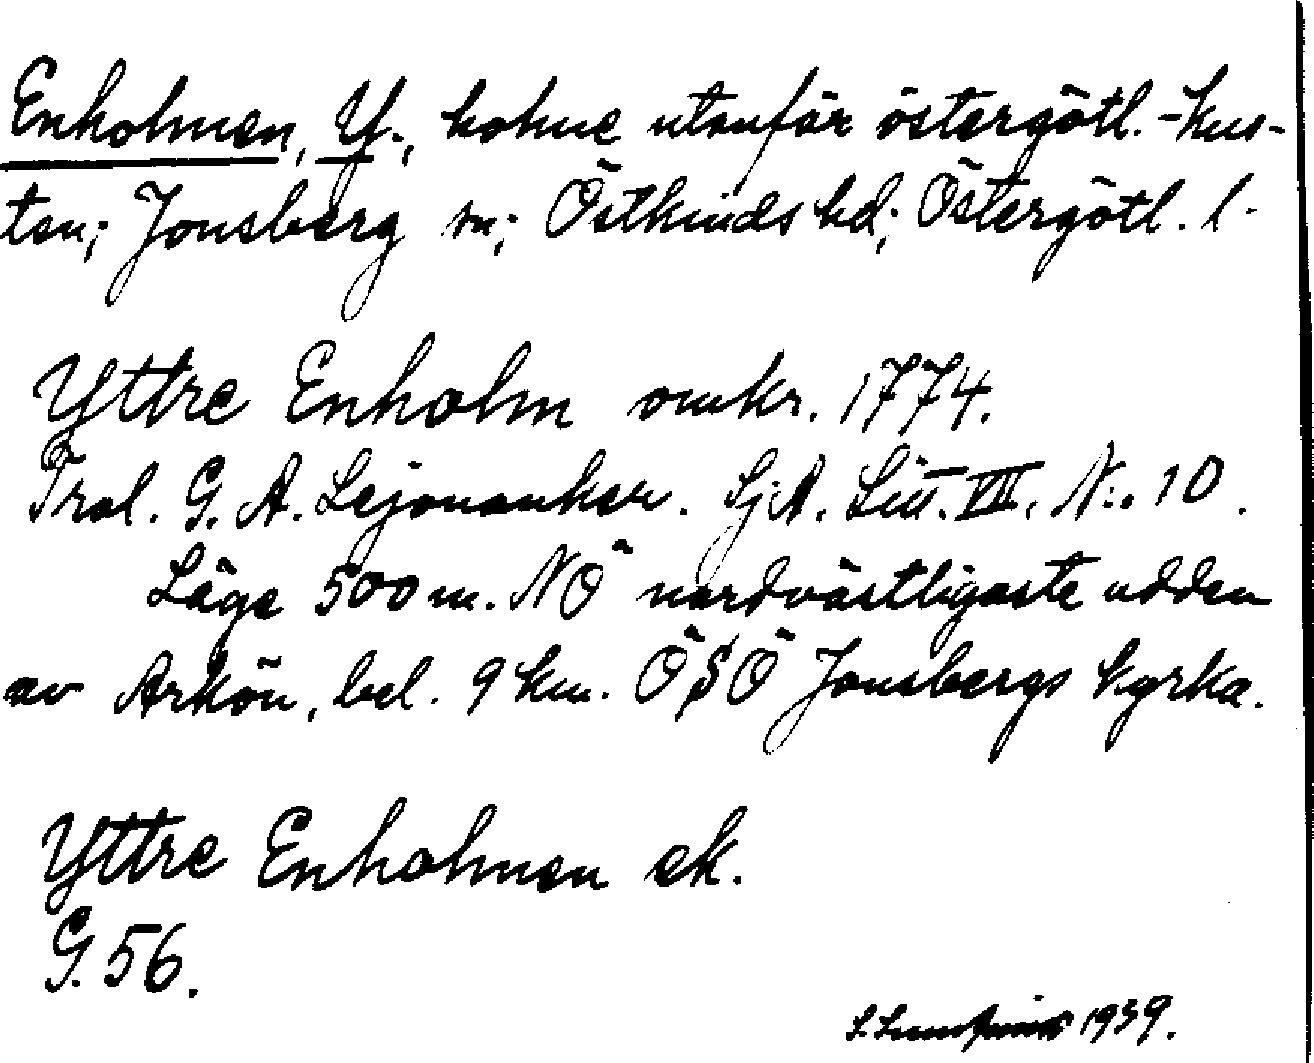 Enholmen, Y., holme utanför östergötl.-kus-
ten; Jonsberg sn; Östkinds hd; Östergötl. l.
Yttre Enholm omkr. 1774.
Trol. G. A. Lejonanker. SjA. Litt. VIII. N:. 10.
Läge 500 m. NÖ nordvästligaste udden
av Arkön, bel. 9 km. ÖSÖ Jonsbergs kyrka.
Yttre Enholmen ek.
G. 56.
1939.